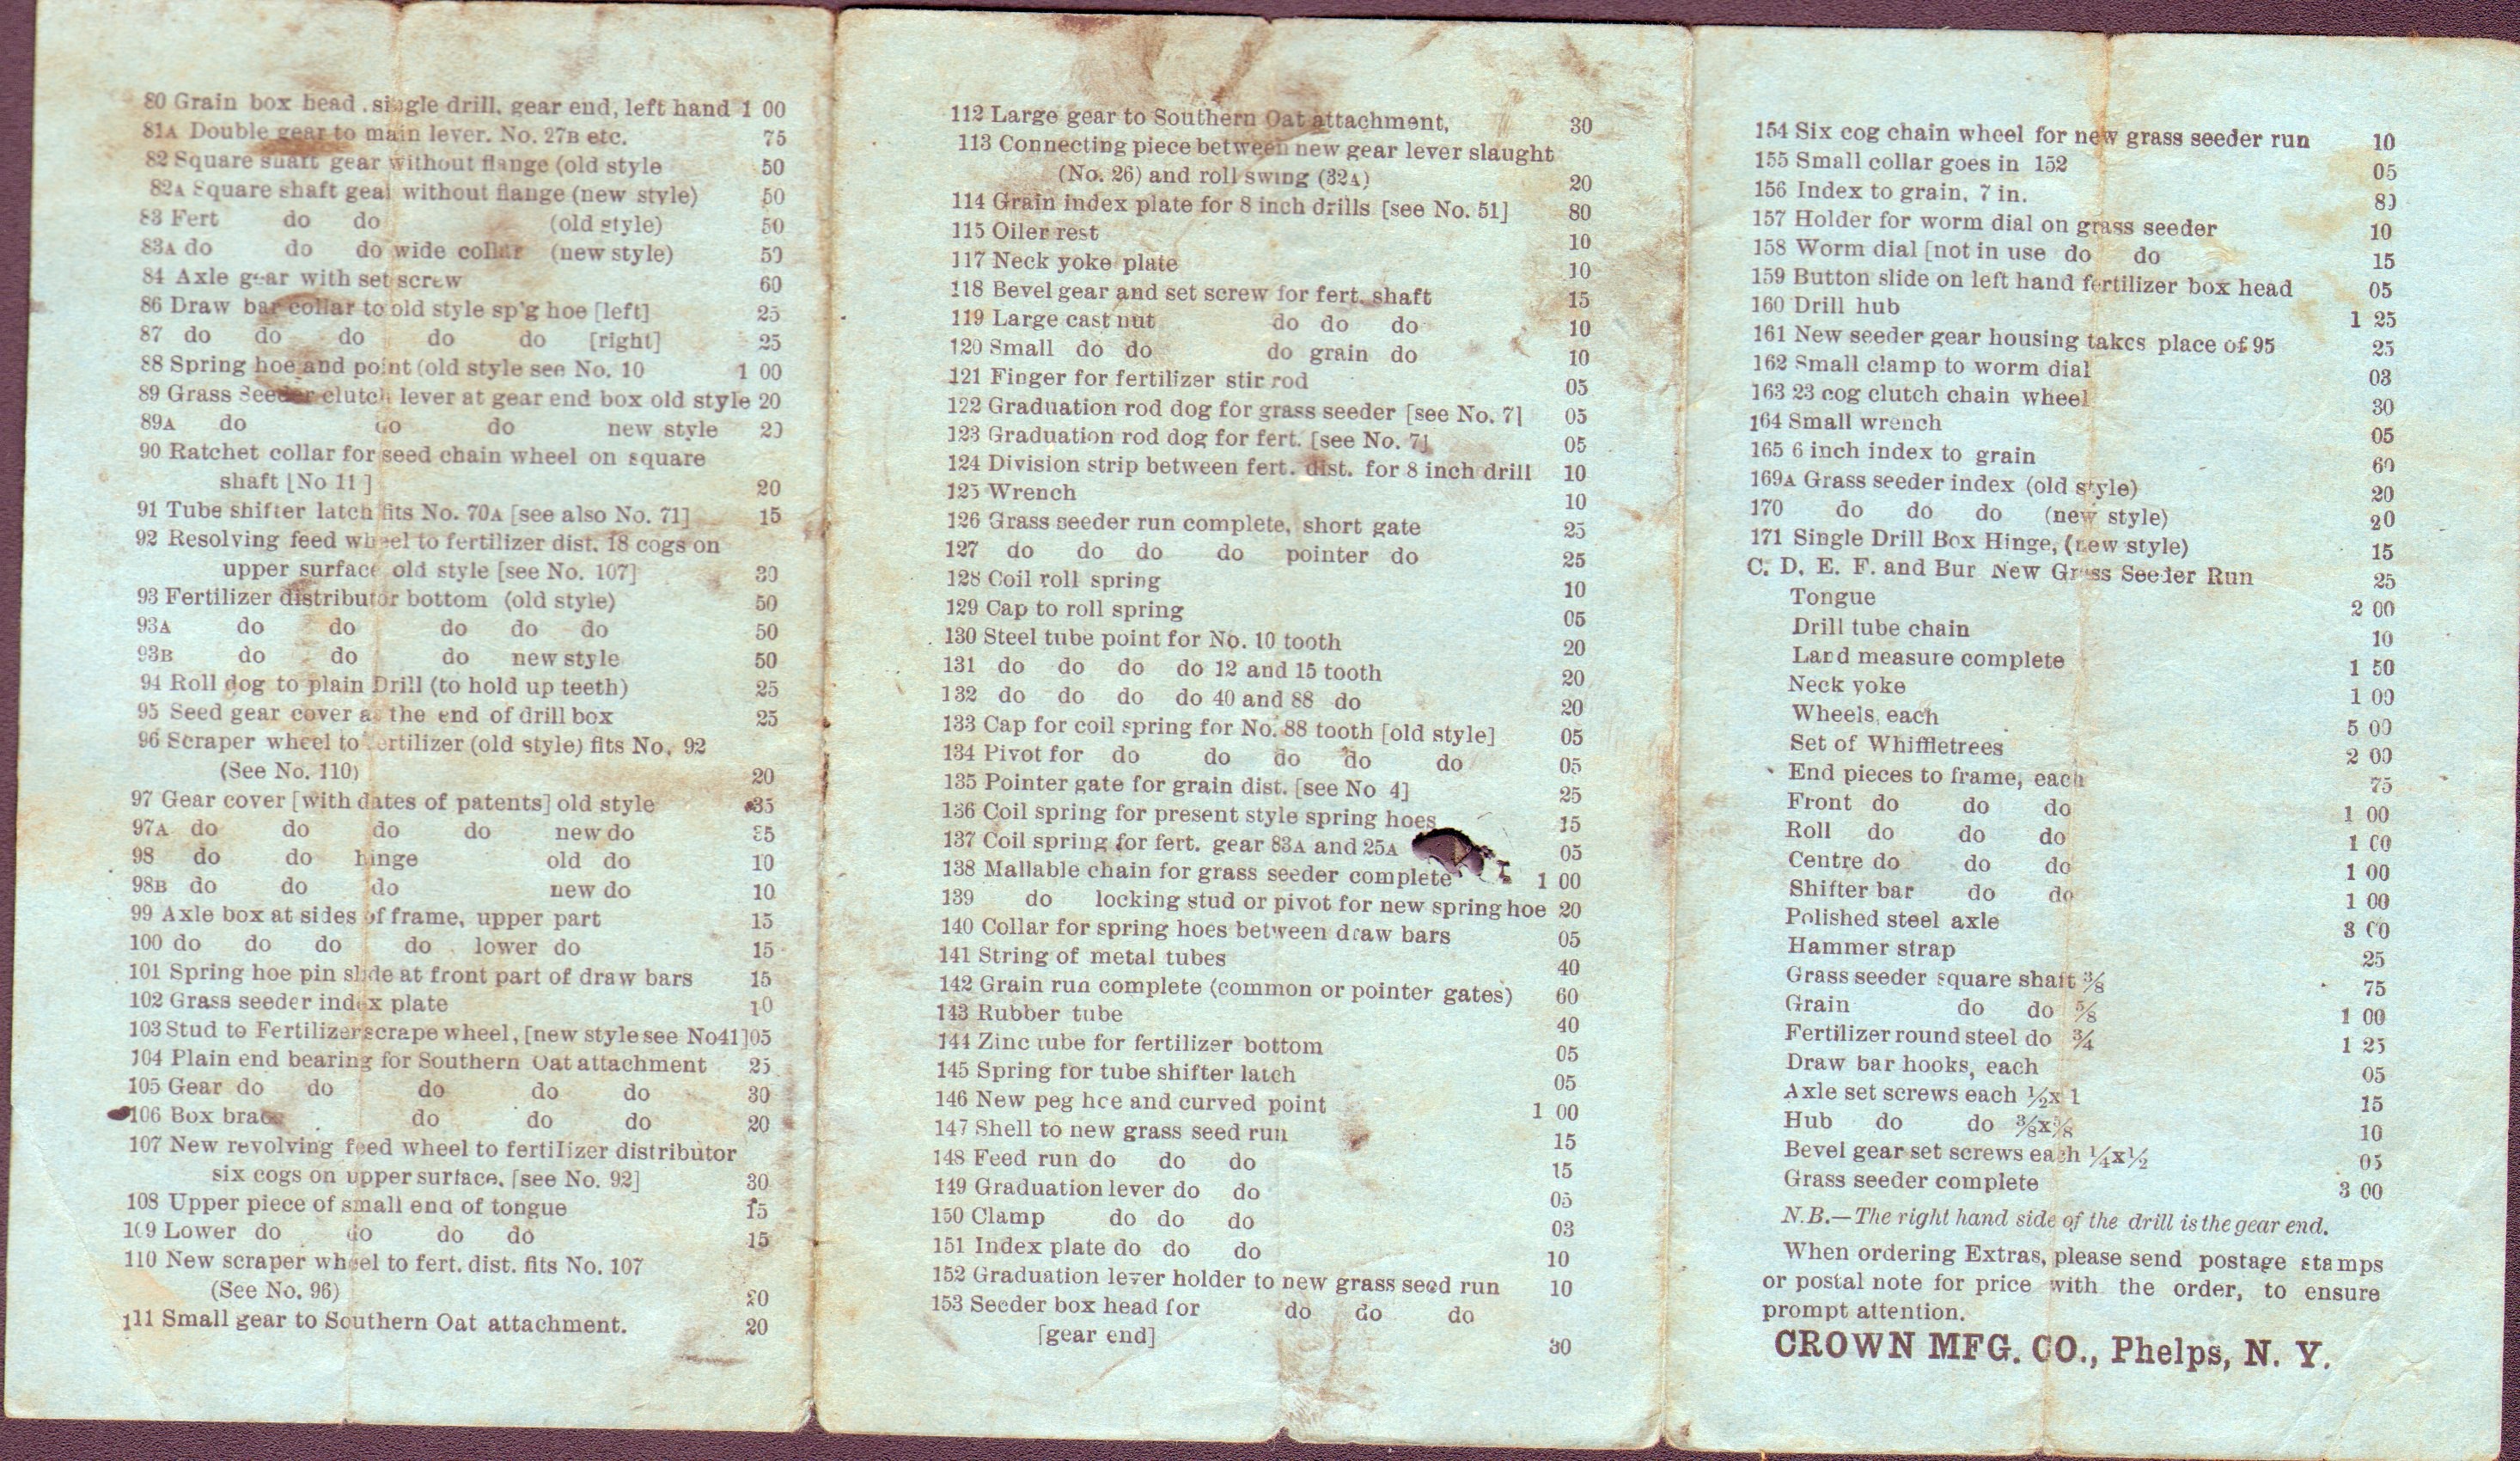 80 Grain box head . single drill. gear end, left hand 1 00
81A Double gear to main lever. No. 27B etc. 75
82 Square shaft gear without flange (old style 50
82A Square shaft gear without flange (new style) 50
83 Fert do do (old style) 50
83A do do do wide collar (new style) 50
84 Axle gear with set screw 60
86 Draw bar collar to old style sp'g hoe [left] 25
87 do do do do do [right] 25
88 Spring hoe and point (old style see No. 10 1 00
89 Grass Seeder clutch lever at gear end box old style 20
89A do do do new style 20
90 Ratchet collar for seed chain wheel on square
shaft [No 11] 20
91 Tube shifter latch fits No. 70A [see also No. 71] 15
92 Resolving feed wheel to fertilizer dist. 18 cogs on
upper surface old style [see No. 107] 30
93 Fertilizer distributor bottom (old style) 50
93A do do do do do 50
93B do do do new style 50
94 Roll dog to plain Drill (to hold up teeth) 25
95 Seed gear cover at the end of drill box 25
96 Scraper wheel to fertilizer (old style) fits No. 92
(See No. 110) 20
97 Gear cover [with dates of patents] old style 35
97A do do do do new do 35
98 do do hinge old do 10
98B do do do new do 10
99 Axle box at sides of frame, upper part 15
100 do do do do lower do 15
101 Spring hoe pin slide at front part of draw bars 15
102 Grass seeder index plate 10
103 Stud to Fertilizer scrape wheel, [new style see No41] 05
104 Plain end bearing for Southern Oat attachment 25
105 Gear do do do do do 30
106 Box brace do do do 20
107 New revolving feed wheel to fertilizer distributor
six cogs on upper surface. [see No. 92] 30
108 Upper piece of small end of tongue 15
109 Lower do do do do 15
110 New scraper wheel to fert. dist. fits No. 107
(See No. 96) 20
111 Small gear to Southern Oat attachment. 20
112 Large gear to Southern Oat attachment, 30
113 Connecting piece between new gear lever slaught
(No. 26) and roll swing (32A) 20
114 Grain index plate for 8 inch drills [see No. 51] 80
115 Oiler rest 10
117 Neck yoke plate 10
118 Bevel gear and set screw for fert. shaft 15
119 Large cast nut do do do 10
120 Small do do do grain do 10
121 Finger for fertilizer stir rod 05
122 Graduation rod dog for grass seeder [see No. 7] 05
123 Graduation rod dog for fert. [see No. 7] 05
124 Division strip between fert. dist. for 8 inch drill 10
125 Wrench 10
126 Grass seeder run complete, short gate 25
127 do do do do pointer do 25
128 Coil roll spring 10
129 Cap to roll spring 05
130 Steel tube point for No. 10 tooth 20
131 do do do do 12 and 15 tooth 20
132 do do do do 40 and 88 do 20
133 Cap for coil spring for No. 88 tooth [old style] 05
134 Pivot for do do do do do 05
135 Pointer gate for grain dist. [see No 4] 25
136 Coil spring for present style spring hoes 15
137 Coil spring for fert. gear 83A and 25A 05
138 Mallable chain for grass seeder complete 1 00
139 do locking stud or pivot for new spring hoe 20
140 Collar for spring hoes between draw bars 05
141 String of metal tubes 40
142 Grain run complete (common or pointer gates) 60
143 Rubber tube 40
144 Zinc tube for fertilizer bottom 05
145 Spring for tube shifter latch 05
146 New peg hoe and curved point 1 00
147 Shell to new grass seed run 15
148 Feed run do do do 15
149 Graduation lever do do 05
150 Clamp do do do 03
151 Index plate do do do 10
152 Graduation lever holder to new grass seed run 10
153 Seeder box head for do do do
[gear end] 30
154 Six cog chain wheel for new grass seeder run 10
155 Small collar goes in 152 05
156 Index to grain, 7 in. 80
157 Holder for worm dial on grass seeder 10
158 Worm dial [not in use do do 15
159 Button slide on left hand fertilizer box head 05
160 Drill hub 1 25
161 New seeder gear housing takes place of 95 25
162 Small clamp to worm dial 03
163 23 cog clutch chain wheel 30
164 Small wrench 05
165 6 inch index to grain 60
169A Grass seeder index (old style) 20
170 do do do (new style) 20
171 Single Drill Box Hinge, (new style) 15
C. D. E. F. and Bur New Grass Seeder Run 25
Tongue 2 00
Drill tube chain 10
Land measure complete 1 50
Neck yoke 1 00
Wheels, each 5 00
Set of Whiffletrees 2 00
End pieces to frame, each 75
Front do do do 1 00
Roll do do do 1 00
Centre do do do 1 00
Shifter bar do do 1 00
Polished steel axle 3 00
Hammer strap 25
Grass seeder square shaft ⅜ 75
Grain do do ⅝ 1 00
Fertilizer round steel do ¾ 1 25
Draw bar hooks, each 05
Axle set screws each ½x 1 15
Hub do do ⅜x⅝ 10
Bevel gear set screws each ¼x½ 05
Grass seeder complete 3 00
N.B.—The right hand side of the drill is the gear end.
When ordering Extras, please send postage stamps
or postal note for price with the order, to ensure
prompt attention.
CROWN MFG. CO., Phelps, N. Y.